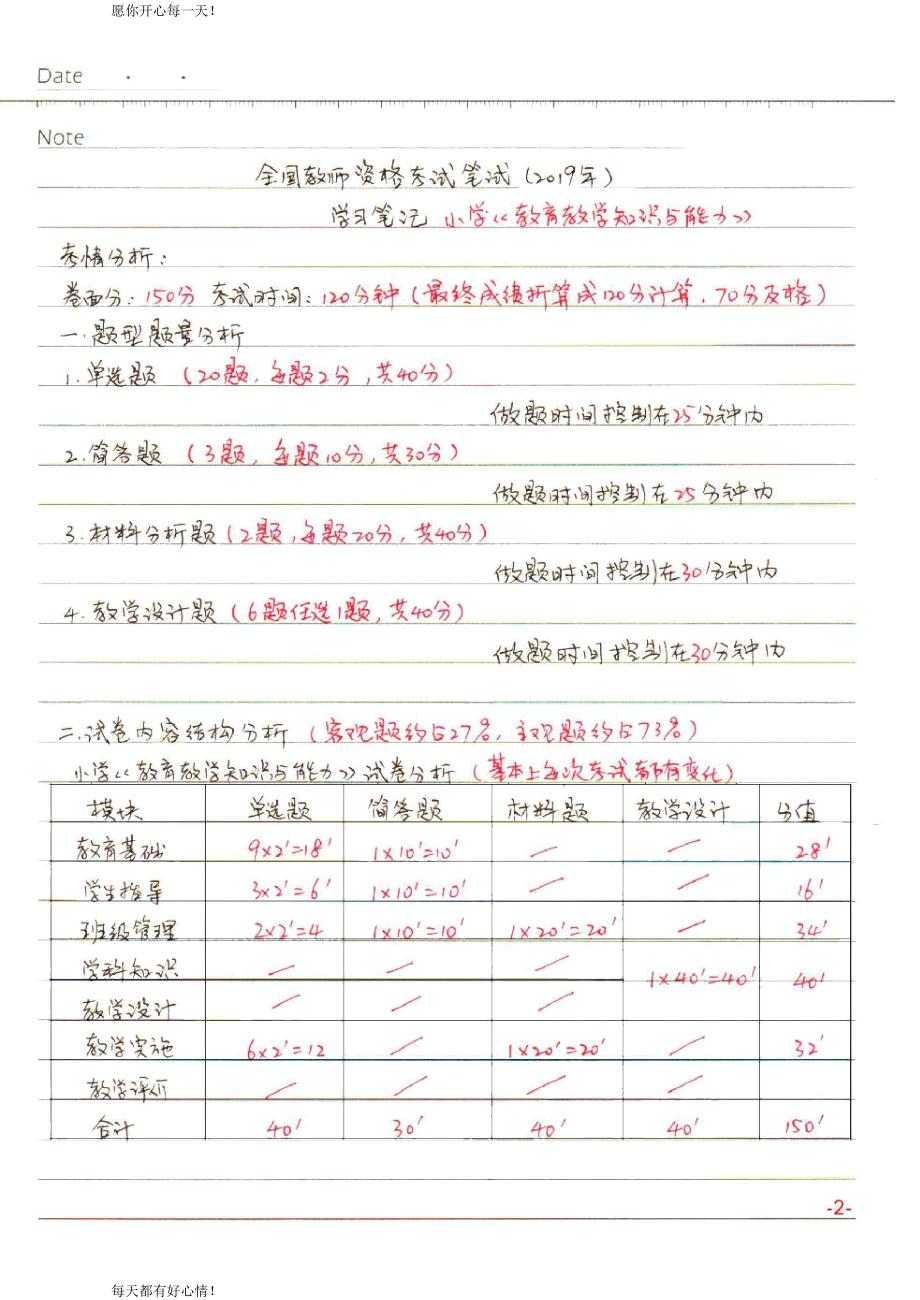 愿你开心每一天!
Date · ·
Note
全国教师资格考试笔试(2019年)
学习笔记 小学《教育教学知识与能力》
考情分析:
卷面分:150分 考试时间:120分钟(最终成绩折算成120分计算,70分及格)
一.题型题量分析
1.单选题 (20题,每题2分,共40分)
做题时间控制在25分钟内
2.简答题 (3题,每题10分,共30分)
做题时间控制在25分钟内
3.材料分析题(2题,每题20分,共40分)
做题时间控制在30分钟内
4.教学设计题(6题任选1题,共40分)
做题时间控制在30分钟内
二.试卷内容结构分析(客观题约占27%,主观题约占73%)
小学《教育教学知识与能力》试卷分析(基本上每次考试都有变化)
模块 单选题 简答题 材料题 教学设计 分值
教育基础 9×2'=18' 1×10'=10' / / 28'
学生指导 3×2'=6' 1×10'=10' / / 16'
班级管理 2×2'=4 1×10'=10' 1×20'=20' / 34'
学科知识 / / / 1×40'=40' 40'
教学设计 / / /
教学实施 6×2'=12 / 1×20'=20' / 32'
教学评价 / / / /
合计 40' 30' 40' 40' 150'
-2-
每天都有好心情!